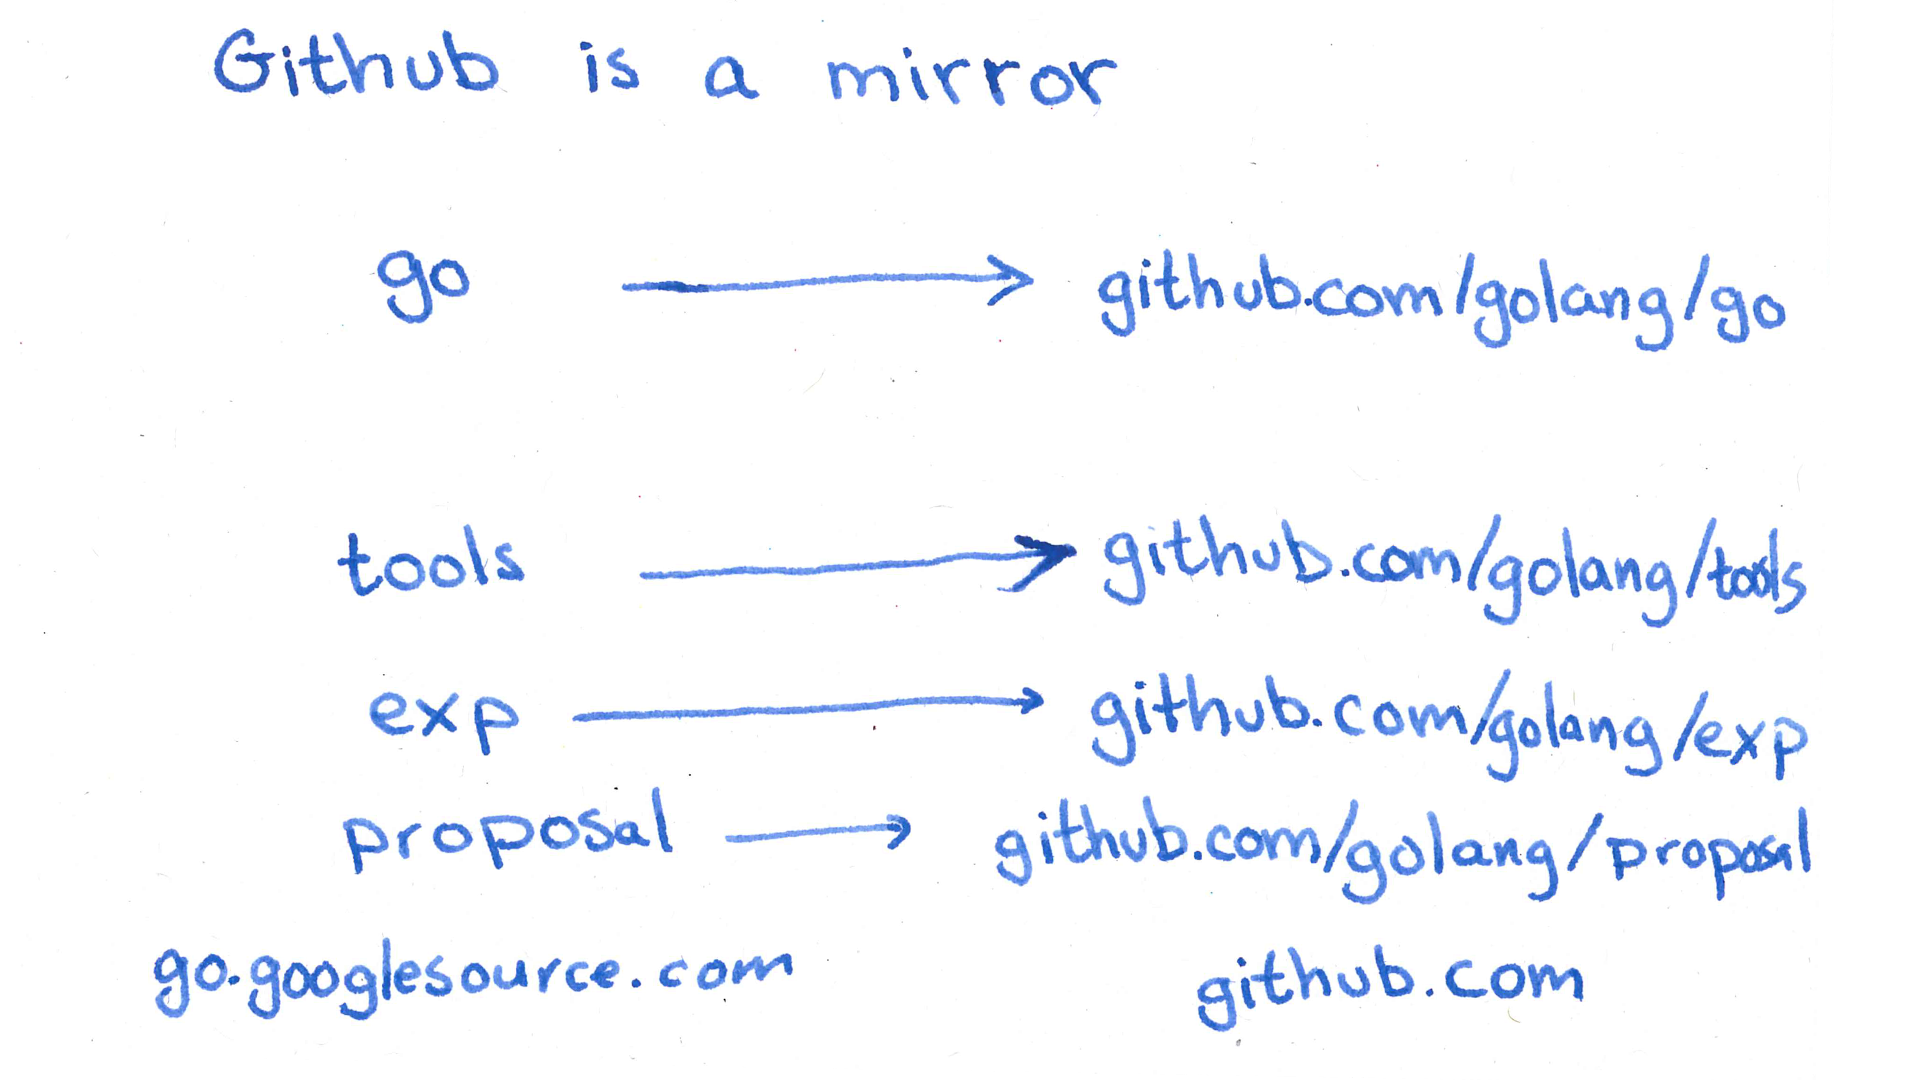 Github is a mirror
go → github.com/golang/go
tools → github.com/golang/tools
exp → github.com/golang/exp
proposal → github.com/golang/proposal
go.googlesource.com github.com